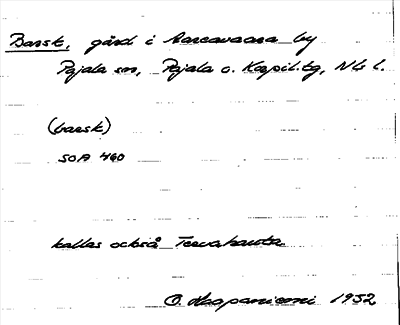 Barsk, gård i Aareavaara by
Pajala sn, Pajala o. Korpil. tg, Nb l.
(barsk)
SOA 460
kallas också Tervahauta
O. Haapaniemi 1932